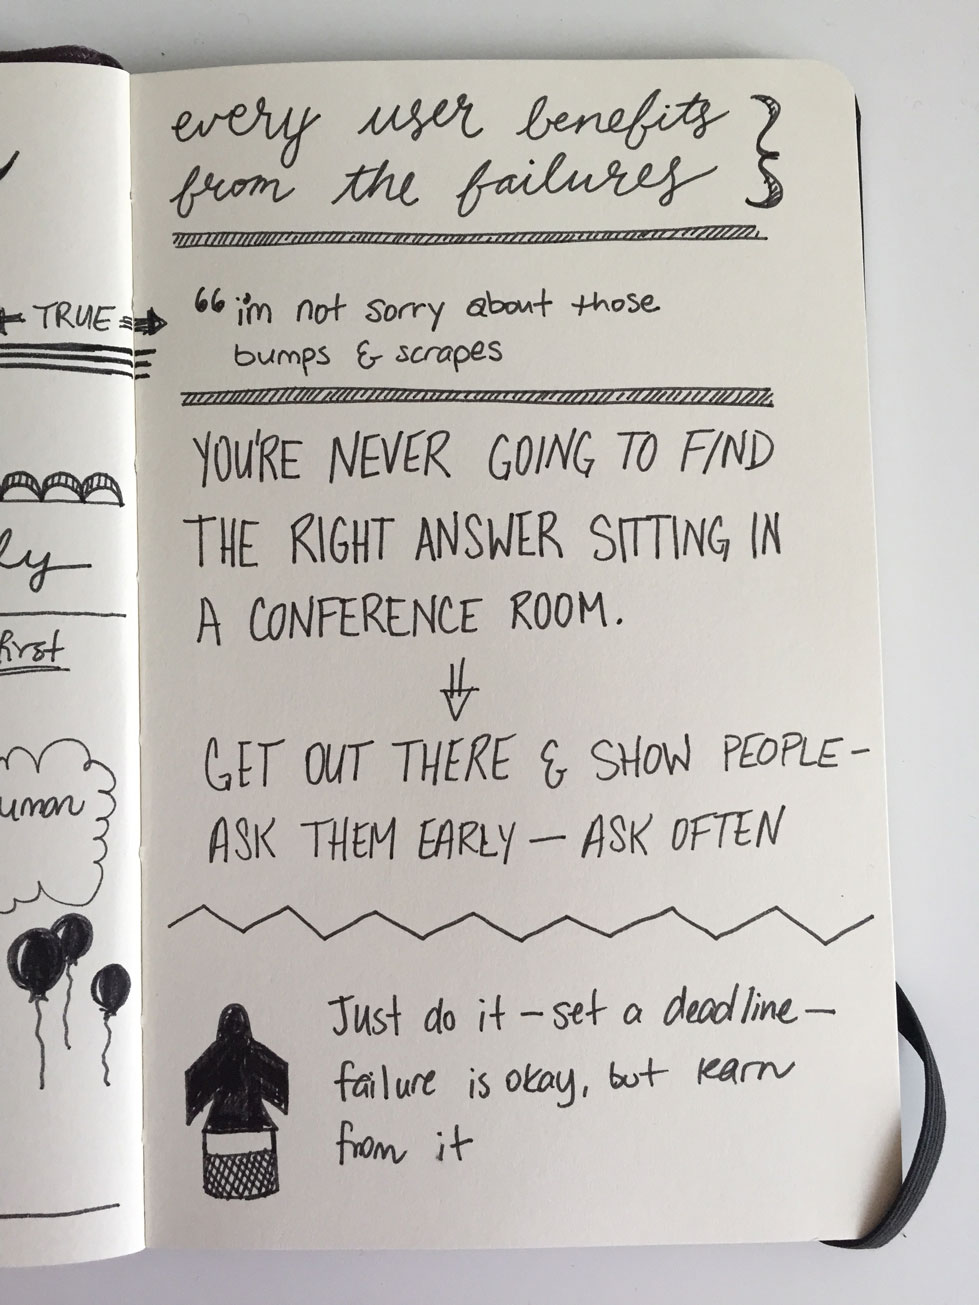 every user benefits
from the failures
TRUE
“i'm not sorry about those
bumps & scrapes
YOU'RE NEVER GOING TO FIND
THE RIGHT ANSWER SITTING IN
A CONFERENCE ROOM.
GET OUT THERE & SHOW PEOPLE—
ASK THEM EARLY — ASK OFTEN
Just do it — set a deadline —
failure is okay, but learn
from it
ly
first
uman